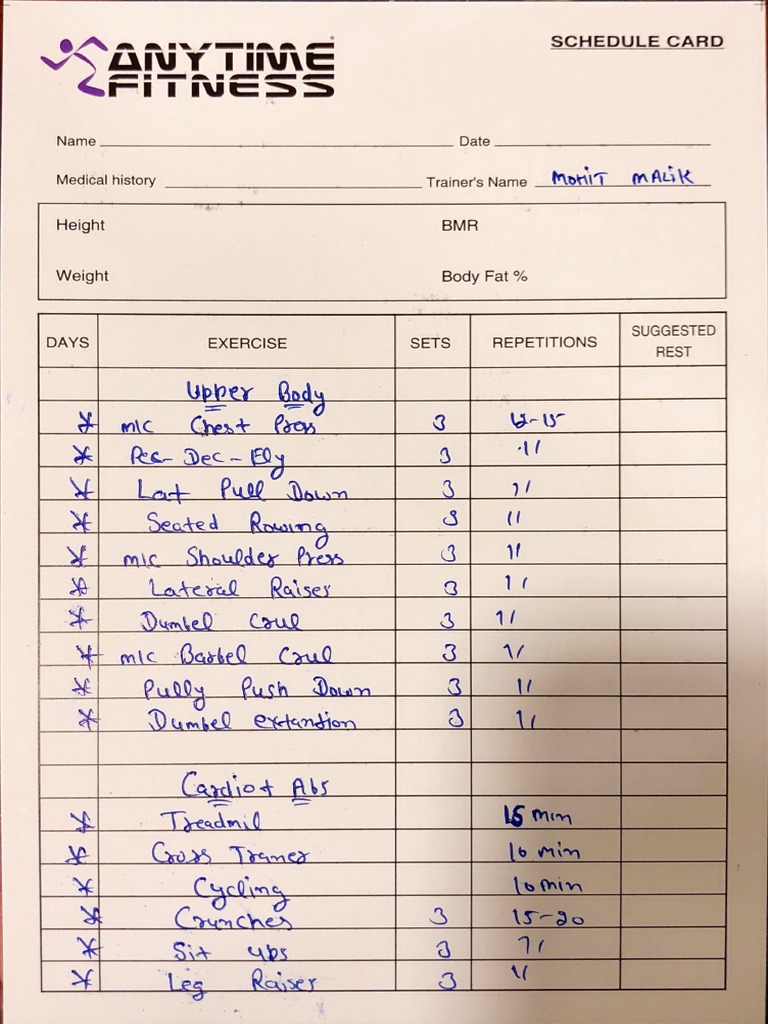 ANYTIME
FITNESS
SCHEDULE CARD
Name Date
Medical history Trainer's Name MOHIT MALIK
Height BMR
Weight Body Fat %
DAYS EXERCISE SETS REPETITIONS SUGGESTED REST
Upper Body
* m/c Chest Press 3 12-15
* Pec-Dec-Fly 3 "
* Lat Pull Down 3 "
* Seated Rowing 3 "
* m/c Shoulder Press 3 "
* Lateral Raiser 3 "
* Dumbel Crul 3 "
* m/c Barbel Crul 3 "
* Pully Push Down 3 "
* Dumbel extantion 3 "
Cardio + Abs
* Treadmil 15 min
* Cross Traner 10 min
* Cycling 10 min
* Crunches 3 15-20
* Sit ups 3 "
* Leg Raiser 3 "